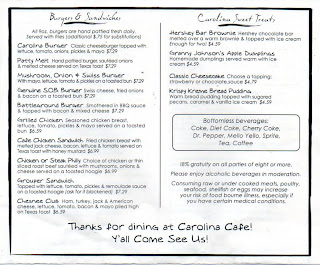 Burgers & Sandwiches
All 8oz. burgers are hand patted fresh daily.
Served with fries (additional $.75 for substitutions)
Carolina Burger Classic cheeseburger topped with
lettuce, tomato, onions, pickles & mayo $7.29
Patty Melt Hand patted burger sautéed onions
& melted cheese served on texas toast $7.29
Mushroom, Onion & Swiss Burger
With mayo, lettuce, tomato & pickles on a toasted bun $7.29
Genuine SOB Burger Swiss cheese, fried onions
& bacon on a toasted bun $7.29
Battleground Burger Smothered in BBQ sauce
& topped with bacon & mixed cheese $7.29
Grilled Chicken Seasoned chicken breast,
lettuce, tomato, pickles & mayo served on a toasted
bun $6.59
Cafe Chicken Sandwich Fried chicken breast with
melted jack cheese, bacon, lettuce & tomato served on
Texas toast with honey mustard $6.99
Chicken or Steak Philly Choice of chicken or thin
sliced roast beef sautéed with mushrooms, onions &
cheese served on a toasted hoagie $6.99
Grouper Sandwich
Topped with lettuce, tomato, pickles & remoulade sauce
on a toasted hoagie (ask for it blackened) $7.39
Chesnee Club Ham, turkey, jack & American
cheese, lettuce, tomato, bacon & mayo piled high
on Texas toast $6.59
Carolina Sweet Treats
Hershey Bar Brownie Hershey chocolate bar
melted over a warm brownie & topped with ice cream
Enough for two! $4.59
Granny Johnson's Apple Dumplings
Homemade dumplings served warm with ice
cream $4.59
Classic Cheesecake Choose a topping:
strawberry or chocolate sauce $4.79
Krispy Kreme Bread Pudding
Warm bread pudding topped with sugared
pecans, caramel & vanilla ice cream $4.59
Bottomless beverages:
Coke, Diet Coke, Cherry Coke,
Dr. Pepper, Mello Yello, Sprite,
Tea, Coffee
18% gratuity on all parties of eight or more.
Please enjoy alcoholic beverages in moderation.
Consuming raw or under cooked meats, poultry,
seafood, shellfish or eggs may increase
your risk of food bourne illness, especially if
you have certain medical conditions.
Thanks for dining at Carolina Cafe!
Y'all Come See Us!